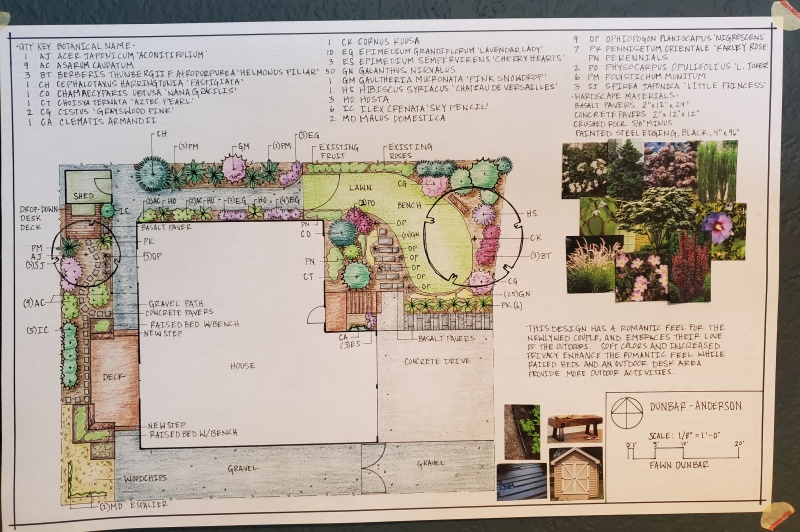 ·QTY KEY BOTANICAL NAME·
1 AJ ACER JAPONICUM 'ACONITIFOLIUM'
9 AC ASARUM CAUDATUM
3 BT BERBERIS THUNBERGII F. ATROPURPUREA 'HELMONDS PILLAR'
1 CH CEPHALOTAXUS HARRINGTONIA 'FASTIGIATA'
1 CO CHAMAECYPARIS OBTUSA 'NANA GRACILIS'
1 CT CHOISYA TERNATA 'AZTEC PEARL'
2 CG CISTUS 'GRAYSWOOD PINK'
1 CA CLEMATIS ARMANDII
1 CK CORNUS KOUSA
10 EG EPIMEDIUM GRANDIFLORUM 'LAVENDAR LADY'
3 ES EPIMEDIUM SEMPERVIRENS 'CHERRY HEARTS'
50 GN GALANTHUS NIRVALUS
1 GM GAULTHERIA MUCRONATA 'PINK SNOWDROP'
1 HS HIBISCUS SYRIACUS 'CHATEAU DE VERSAILLES'
3 HO HOSTA
6 IC ILEX CRENATA 'SKY PENCIL'
2 MD MALUS DOMESTICA
9 OP OPHIOPOGON PLANISCAPUS 'NIGRESCENS'
7 PK PENNISETUM ORIENTALE 'KARLEY ROSE'
PN PERENNIALS
2 PO PHYSOCARPUS OPULIFOLIUS 'L. JOKER'
6 PM POLYSTICHUM MUNITUM
3 SJ SPIREA JAPONICA 'LITTLE PRINCESS'
·HARDSCAPE MATERIALS·
BASALT PAVERS 2"x12"x24"
CONCRETE PAVERS 2"x12"x12"
CRUSHED ROCK 5/8" MINUS
PAINTED STEEL EDGING, BLACK, 4"x96"
CH
(3)PM
GM
(3)PM
(3)EG
EXISTING
FRUIT
EXISTING
ROSES
SHED
LAWN
CG
BENCH
DROP-DOWN
DESK
DECK
IC
HO
HO
(3)EG
HO
(4)EG
(2)PO
HS
CK
(3)BT
CG
(25)GN
PK(6)
BASALT PAVER
PK
(3)OP
PN
CO
PN
CT
OP
OP
OP
OP
OP
PM
AJ
(3)SJ
(9)AC
(5)IC
GRAVEL PATH
CONCRETE PAVERS
RAISED BED W/BENCH
NEW STEP
CA
(3)ES
BASALT PAVERS
CONCRETE DRIVE
HOUSE
DECK
NEW STEP
RAISED BED W/BENCH
WOODCHIPS
GRAVEL
GRAVEL
(2)MD ESPALIER
THIS DESIGN HAS A ROMANTIC FEEL FOR THE
NEWLYWED COUPLE, AND EMBRACES THEIR LOVE
OF THE OUTDOORS. SOFT COLORS AND INCREASED
PRIVACY ENHANCE THE ROMANTIC FEEL WHILE
RAISED BEDS AND AN OUTDOOR DESK AREA
PROVIDE MORE OUTDOOR ACTIVITIES.
DUNBAR-ANDERSON
SCALE: 1/8" = 1'-0"
0' 1' 5' 10' 20'
FAWN DUNBAR